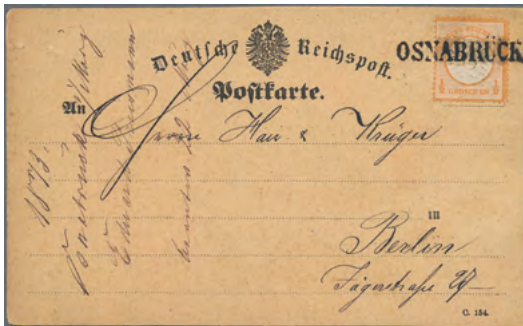 Deutsche Reichspost.
OSNABRÜCK
GROSCHEN
Postkarte.
An
Herrn Hau & Krüger
in
Berlin
Jägerstraße 27
C. 154.
1873.
Osnabrück
Eduard